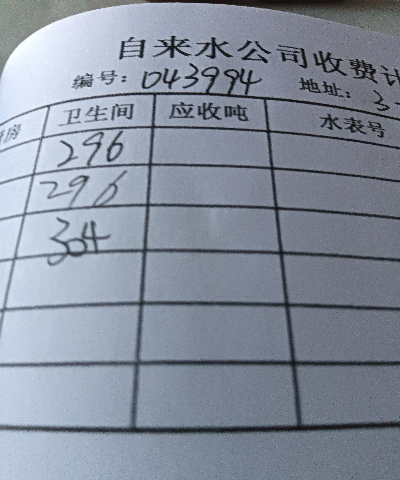 自来水公司收费
编号: 043994 地址: 3
房 卫生间 应收吨 水表号
296
296
304